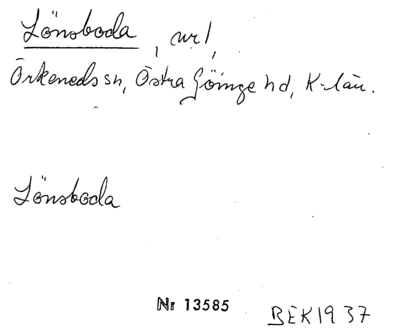 Lönsboda, nr 1,
Örkeneds sn, Östra Göinge hd, K-län.
Lönsboda
Nr 13585
BEK 1937